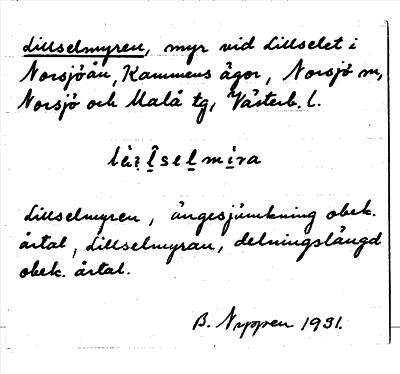 Lillselmyren, myr vid Lillselet i
Norsjöån, Kammens ägor, Norsjö sn,
Norsjö och Malå tg, Västerb. l.
Lillselmyren, ängesjämkning obek.
årtal, Lillselmyran, delningslängd
obek. årtal.
B. Nyppen 1931.